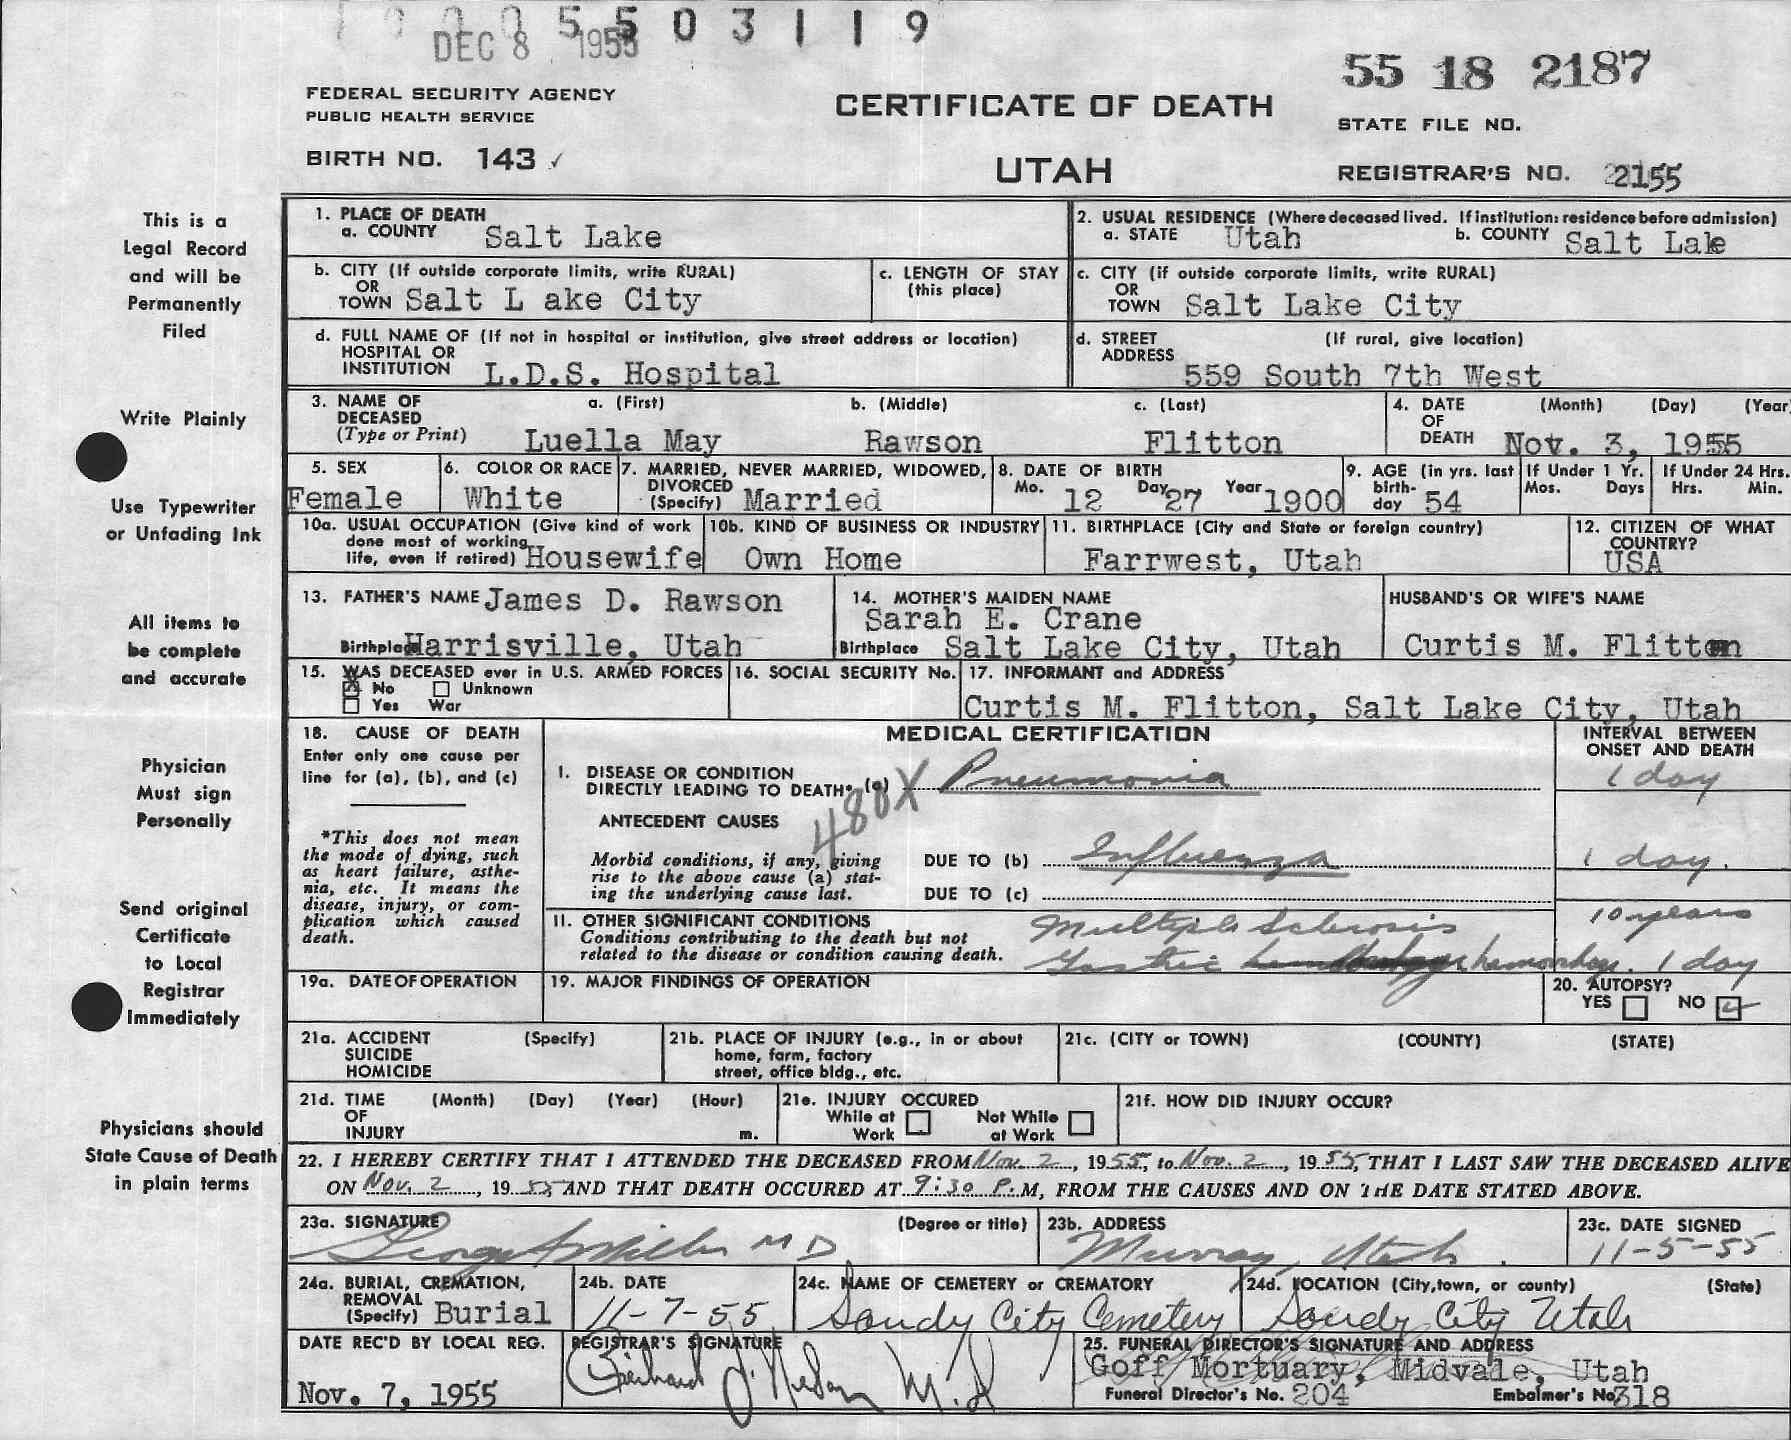 5 5 0 3 1 1 9
DEC 8 1955
55 18 2187
FEDERAL SECURITY AGENCY
PUBLIC HEALTH SERVICE
CERTIFICATE OF DEATH
STATE FILE NO.
BIRTH NO. 143 ✓
UTAH
REGISTRAR'S NO. 2155
This is a
Legal Record
and will be
Permanently
Filed
Write Plainly
Use Typewriter
or Unfading Ink
All items to
be complete
and accurate
Physician
Must sign
Personally
Send original
Certificate
to Local
Registrar
Immediately
Physicians should
State Cause of Death
in plain terms
1. PLACE OF DEATH
a. COUNTY Salt Lake
2. USUAL RESIDENCE (Where deceased lived. If institution: residence before admission)
a. STATE Utah b. COUNTY Salt Lake
b. CITY (If outside corporate limits, write RURAL)
OR
TOWN Salt L ake City
c. LENGTH OF STAY
(this place)
c. CITY (if outside corporate limits, write RURAL)
OR
TOWN Salt Lake City
d. FULL NAME OF (If not in hospital or institution, give street address or location)
HOSPITAL OR
INSTITUTION L.D.S. Hospital
d. STREET (If rural, give location)
ADDRESS
559 South 7th West
3. NAME OF a. (First) b. (Middle) c. (Last)
DECEASED
(Type or Print) Luella May Rawson Flitton
4. DATE (Month) (Day) (Year
OF
DEATH Nov. 3, 1955
5. SEX
Female
6. COLOR OR RACE
White
7. MARRIED, NEVER MARRIED, WIDOWED,
DIVORCED
(Specify) Married
8. DATE OF BIRTH
Mo. 12 Day 27 Year 1900
9. AGE (in yrs. last
birth-
day 54
If Under 1 Yr.
Mos. Days
If Under 24 Hrs.
Hrs. Min.
10a. USUAL OCCUPATION (Give kind of work
done most of working
life, even if retired) Housewife
10b. KIND OF BUSINESS OR INDUSTRY
Own Home
11. BIRTHPLACE (City and State or foreign country)
Farrwest, Utah
12. CITIZEN OF WHAT
COUNTRY?
USA
13. FATHER'S NAME James D. Rawson
Birthplace Harrisville, Utah
14. MOTHER'S MAIDEN NAME
Sarah E. Crane
Birthplace Salt Lake City, Utah
HUSBAND'S OR WIFE'S NAME
Curtis M. Flitton
15. WAS DECEASED ever in U.S. ARMED FORCES
X No Unknown
Yes War
16. SOCIAL SECURITY No.
17. INFORMANT and ADDRESS
Curtis M. Flitton, Salt Lake City, Utah
18. CAUSE OF DEATH
Enter only one cause per
line for (a), (b), and (c)
*This does not mean
the mode of dying, such
as heart failure, asthe-
nia, etc. It means the
disease, injury, or com-
plication which caused
death.
MEDICAL CERTIFICATION
INTERVAL BETWEEN
ONSET AND DEATH
I. DISEASE OR CONDITION
DIRECTLY LEADING TO DEATH* (a) Pneumonia 1 day
480X
ANTECEDENT CAUSES
Morbid conditions, if any, giving
rise to the above cause (a) stat-
ing the underlying cause last.
DUE TO (b) Influenza 1 day.
DUE TO (c)
II. OTHER SIGNIFICANT CONDITIONS
Conditions contributing to the death but not
related to the disease or condition causing death.
Multiple Sclerosis 10 years
Gastric hemorrhage. 1 day
19a. DATE OF OPERATION
19. MAJOR FINDINGS OF OPERATION
20. AUTOPSY?
YES NO ✓
21a. ACCIDENT (Specify)
SUICIDE
HOMICIDE
21b. PLACE OF INJURY (e.g., in or about
home, farm, factory
street, office bldg., etc.
21c. (CITY or TOWN) (COUNTY) (STATE)
21d. TIME (Month) (Day) (Year) (Hour)
OF
INJURY m.
21e. INJURY OCCURED
While at Not While
Work at Work
21f. HOW DID INJURY OCCUR?
22. I HEREBY CERTIFY THAT I ATTENDED THE DECEASED FROM Nov. 2, 1955, to Nov. 2, 1955, THAT I LAST SAW THE DECEASED ALIVE
ON Nov. 2, 1955 AND THAT DEATH OCCURED AT 9:30 P.M, FROM THE CAUSES AND ON THE DATE STATED ABOVE.
23a. SIGNATURE (Degree or title)
George Miller MD
23b. ADDRESS
Murray, Utah.
23c. DATE SIGNED
11-5-55
24a. BURIAL, CREMATION,
REMOVAL
(Specify) Burial
24b. DATE
11-7-55
24c. NAME OF CEMETERY or CREMATORY
Sandy City Cemetery
24d. LOCATION (City, town, or county) (State)
Sandy City Utah
DATE REC'D BY LOCAL REG.
Nov. 7, 1955
REGISTRAR'S SIGNATURE
M.D
25. FUNERAL DIRECTOR'S SIGNATURE AND ADDRESS
Goff Mortuary, Midvale, Utah
Funeral Director's No. 204 Embalmer's No. 318